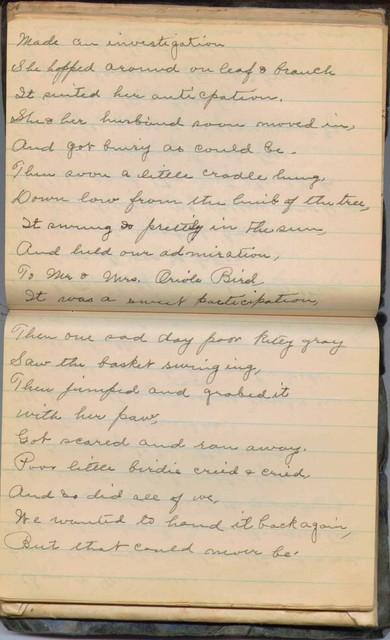 Made an investigation
She hopped around on leaf & branch
It suited her anticpation.
She & her husband soon moved in,
And got busy as could be.
Then soon a little cradle hung,
Down low from the limb of the tree,
It swung so prettily in the sun,
And held our admiration,
To Mr & Mrs. Oriole Bird,
It was a sweet participation,
Then one sad day poor Kitty gray
Saw the basket swinging,
Then jumped and grabed it
with her paw,
Got scared and ran away.
Poor little birdie cried & cried,
And so did all of we,
We wanted to hand it back again,
But that could never be.